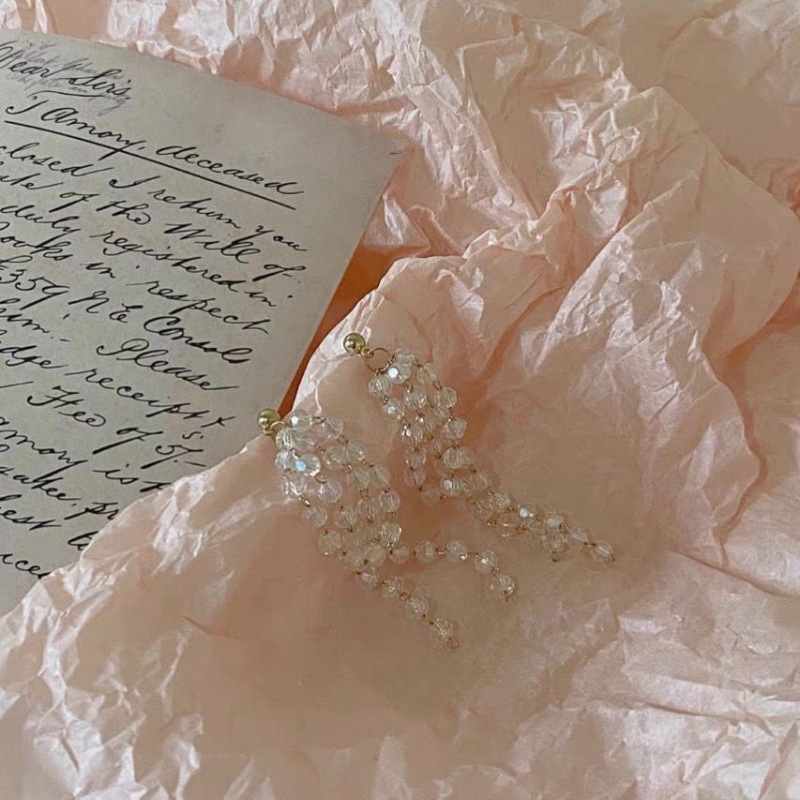 Dear Sirs
T Amory, deceased
closed I return you
of the Will of
duly registered in
Books in respect
£359 N E Consols
him. Please
receipt &
Fee of 5/-
Amory is
take
best